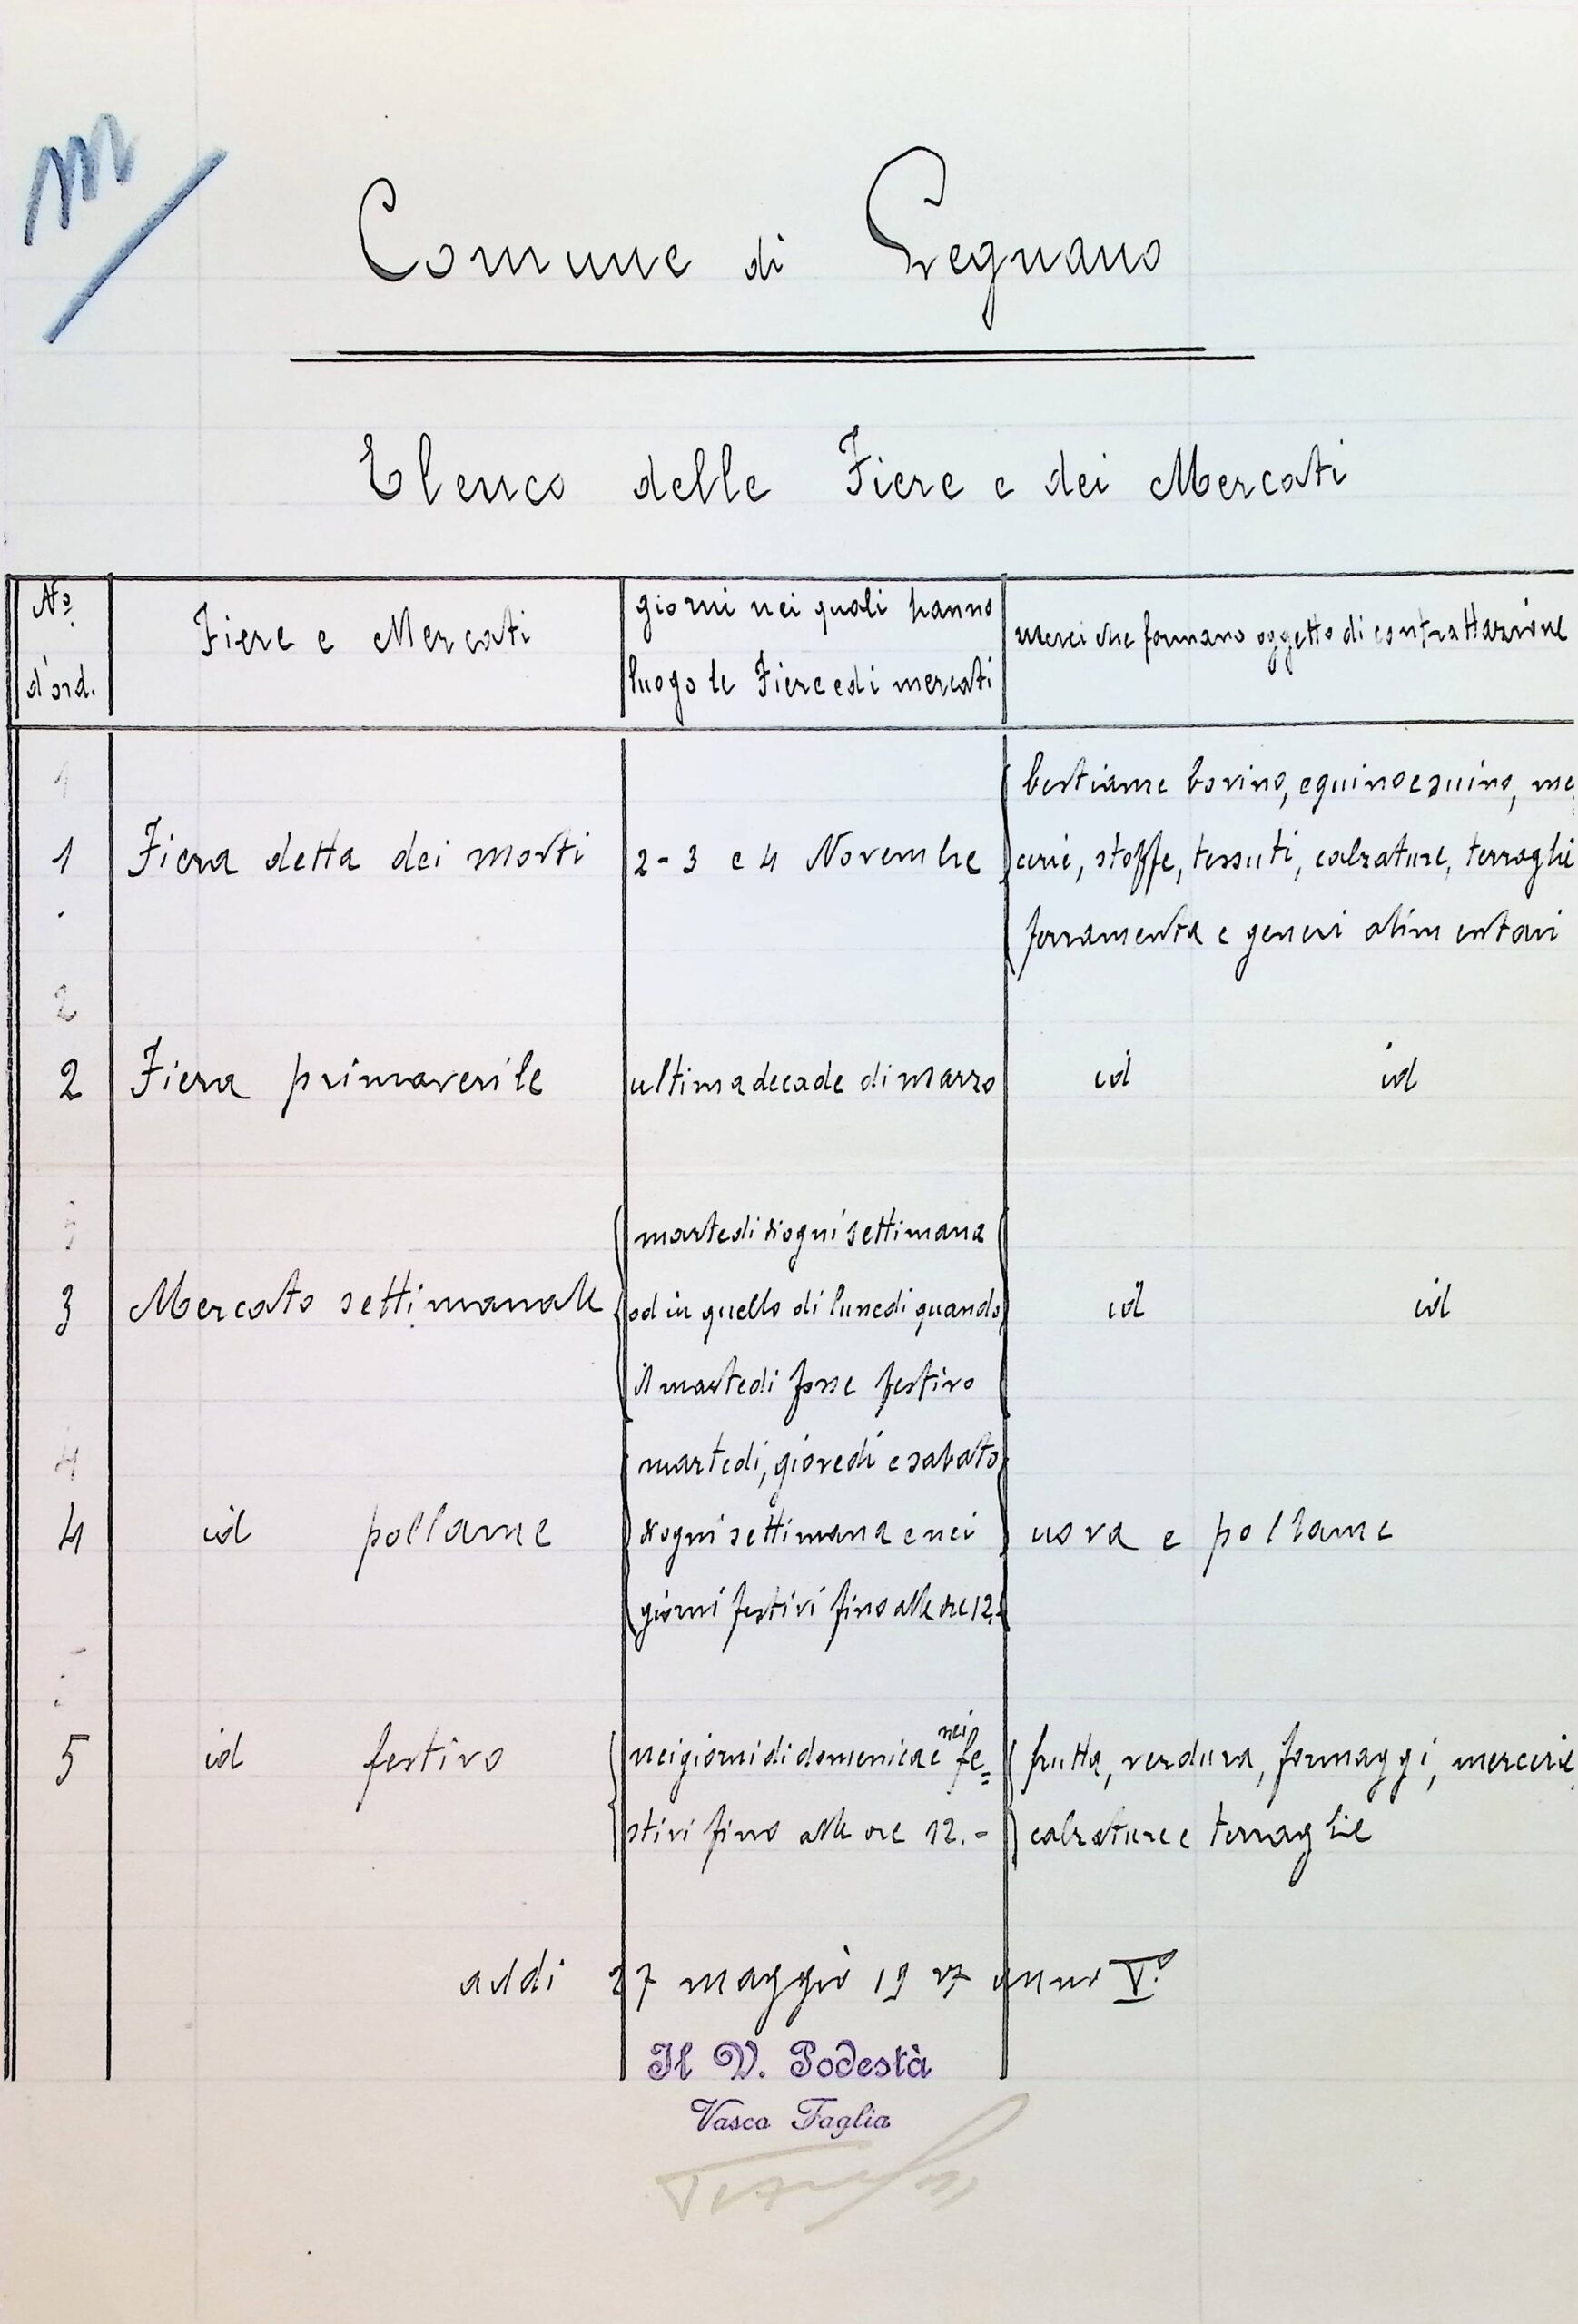 m
Comune di Legnano
Elenco delle Fiere e dei Mercati
No
d'ord.
Fiere e Mercati
giorni nei quali hanno
luogo le Fiere ed i mercati
merci che formano oggetto di contrattazione
1
bestiame bovino, equino e suino, me
1 Fiera detta dei morti 2-3 e 4 Novembre cerie, stoffe, tessuti, calzature, terraglie
ferramenta e generi alimentari
2
2 Fiera primaverile ultima decade di marzo id id
martedì d'ogni settimana
3 Mercato settimanale od in quello di lunedì quando id id
il martedì fosse festivo
4
martedì, giovedì e sabato
4 id pollame d'ogni settimana e nei uova e pollame
giorni festivi fino alle ore 12.
5 id festivo nei giorni di domenica e nei fe= frutta, verdura, formaggi, mercerie
stivi fino alle ore 12.- calzature e terraglie
addi 27 maggio 1927 anno V.o
Il V. Podestà
Vasco Taglia